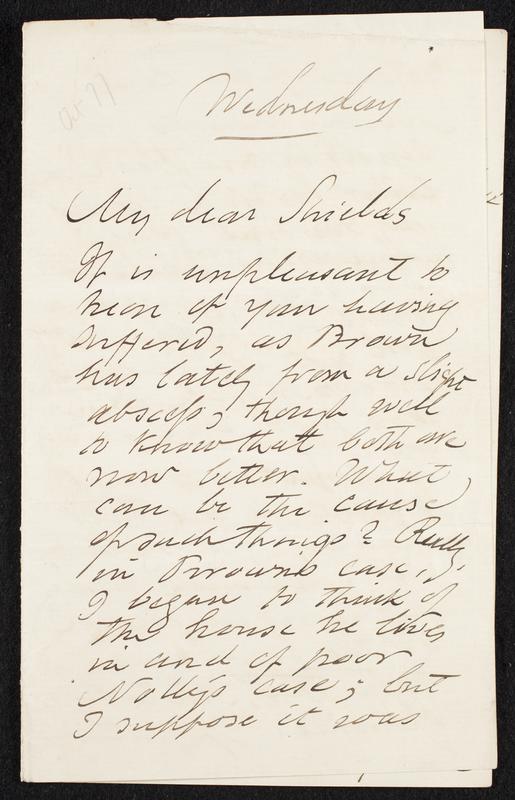 Wednesday
My dear Shields
It is unpleasant to
hear of your having
suffered, as Brown
has lately from a slight
abscess, though well
to know that both are
now better. What
can be the cause
of such things? Really,
in Brown's case,
I began to think of
the house he lives
in and of poor
Nolly's case; but
I suppose it was